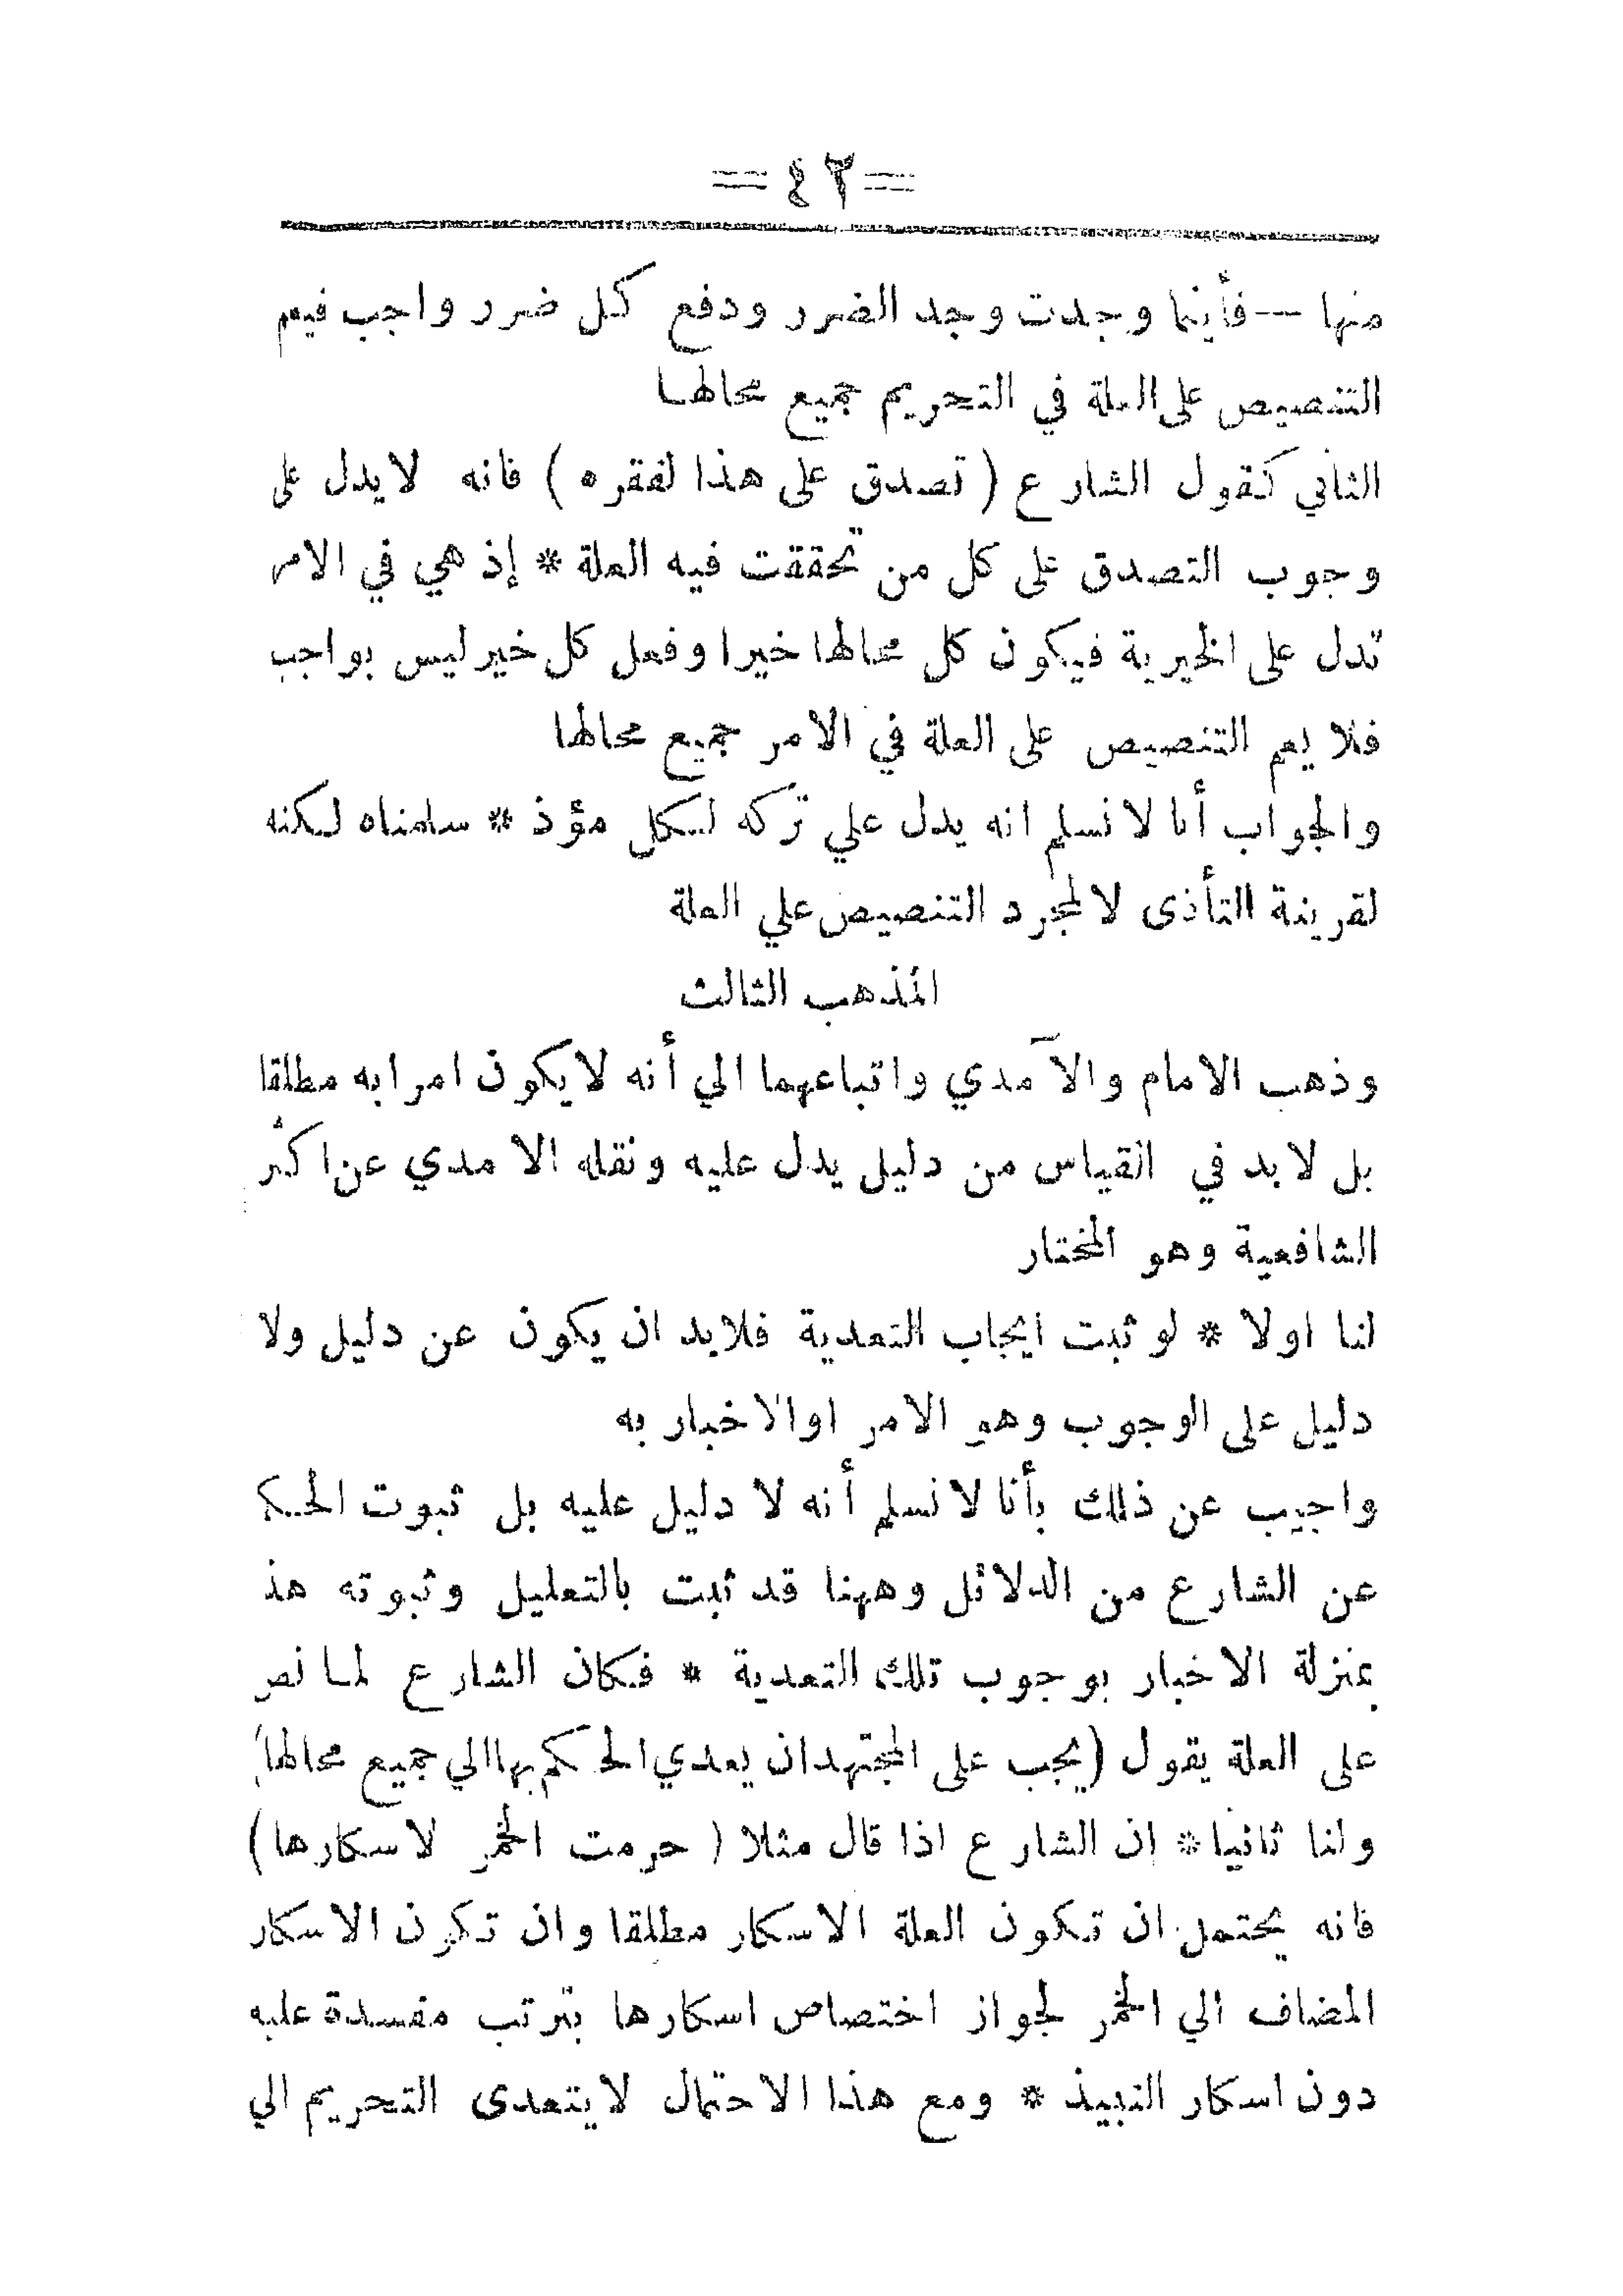 =٤٢=
منها -- فأينما وجدت وجد الضرر ودفع كل ضرر واجب فيعم
التنصيص على العلة في التحريم جميع محالها
الثاني كقول الشارع ( تصدق على هذا لفقره ) فانه لايدل على
وجوب التصدق على كل من تحققت فيه العلة * إذ هي في الامر
تدل على الخيرية فيكون كل محالها خيرا وفعل كل خير ليس بواجب
فلا يعم التنصيص على العلة في الامر جميع محالها
والجواب أنا لا نسلم انه يدل علي تركه لكل مؤذ * سلمناه لكنه
لقرينة التأذى لا لمجرد التنصيص علي العلة
المذهب الثالث
وذهب الامام والآمدي واتباعهما الي أنه لايكون امرا به مطلقا
بل لا بد في القياس من دليل يدل عليه ونقله الامدي عن اكثر
الشافعية وهو المختار
لنا اولا * لو ثبت ايجاب التعدية فلابد ان يكون عن دليل ولا
دليل على الوجوب وهو الامر او الاخبار به
واجيب عن ذلك بأنا لا نسلم أنه لا دليل عليه بل ثبوت الحكم
عن الشارع من الدلائل وههنا قد ثبت بالتعليل وثبوته هذ
بمنزلة الاخبار بوجوب تلك التعدية * فكان الشارع لما نص
على العلة يقول (يجب على المجتهد ان يعدي الحكم بها الي جميع محالها)
ولنا ثانيا * ان الشارع اذا قال مثلا ( حرمت الخمر لاسكارها)
فانه يحتمل ان تكون العلة الاسكار مطلقا وان تكون الاسكار
المضاف الي الخمر لجواز اختصاص اسكارها بترتب مفسدة عليه
دون اسكار النبيذ * ومع هذا الاحتمال لا يتعدى التحريم الي